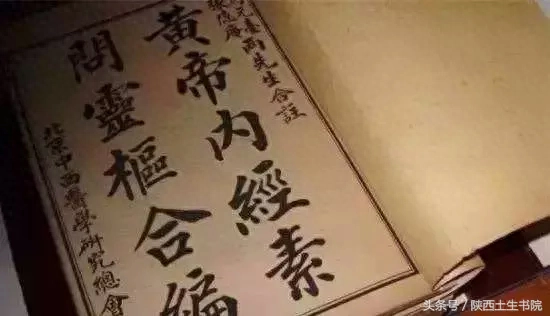 元臺
張隱庵
兩先生合註
黃帝內經素
問靈樞合編
北京中西醫學研究總會
头条号／陕西土生书院